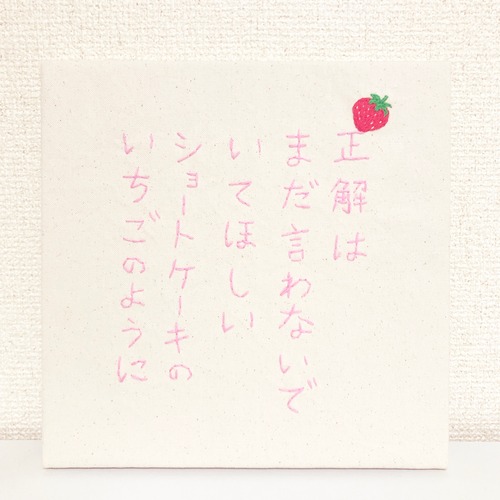 正解は
まだ言わないで
いてほしい
ショートケーキの
いちごのように